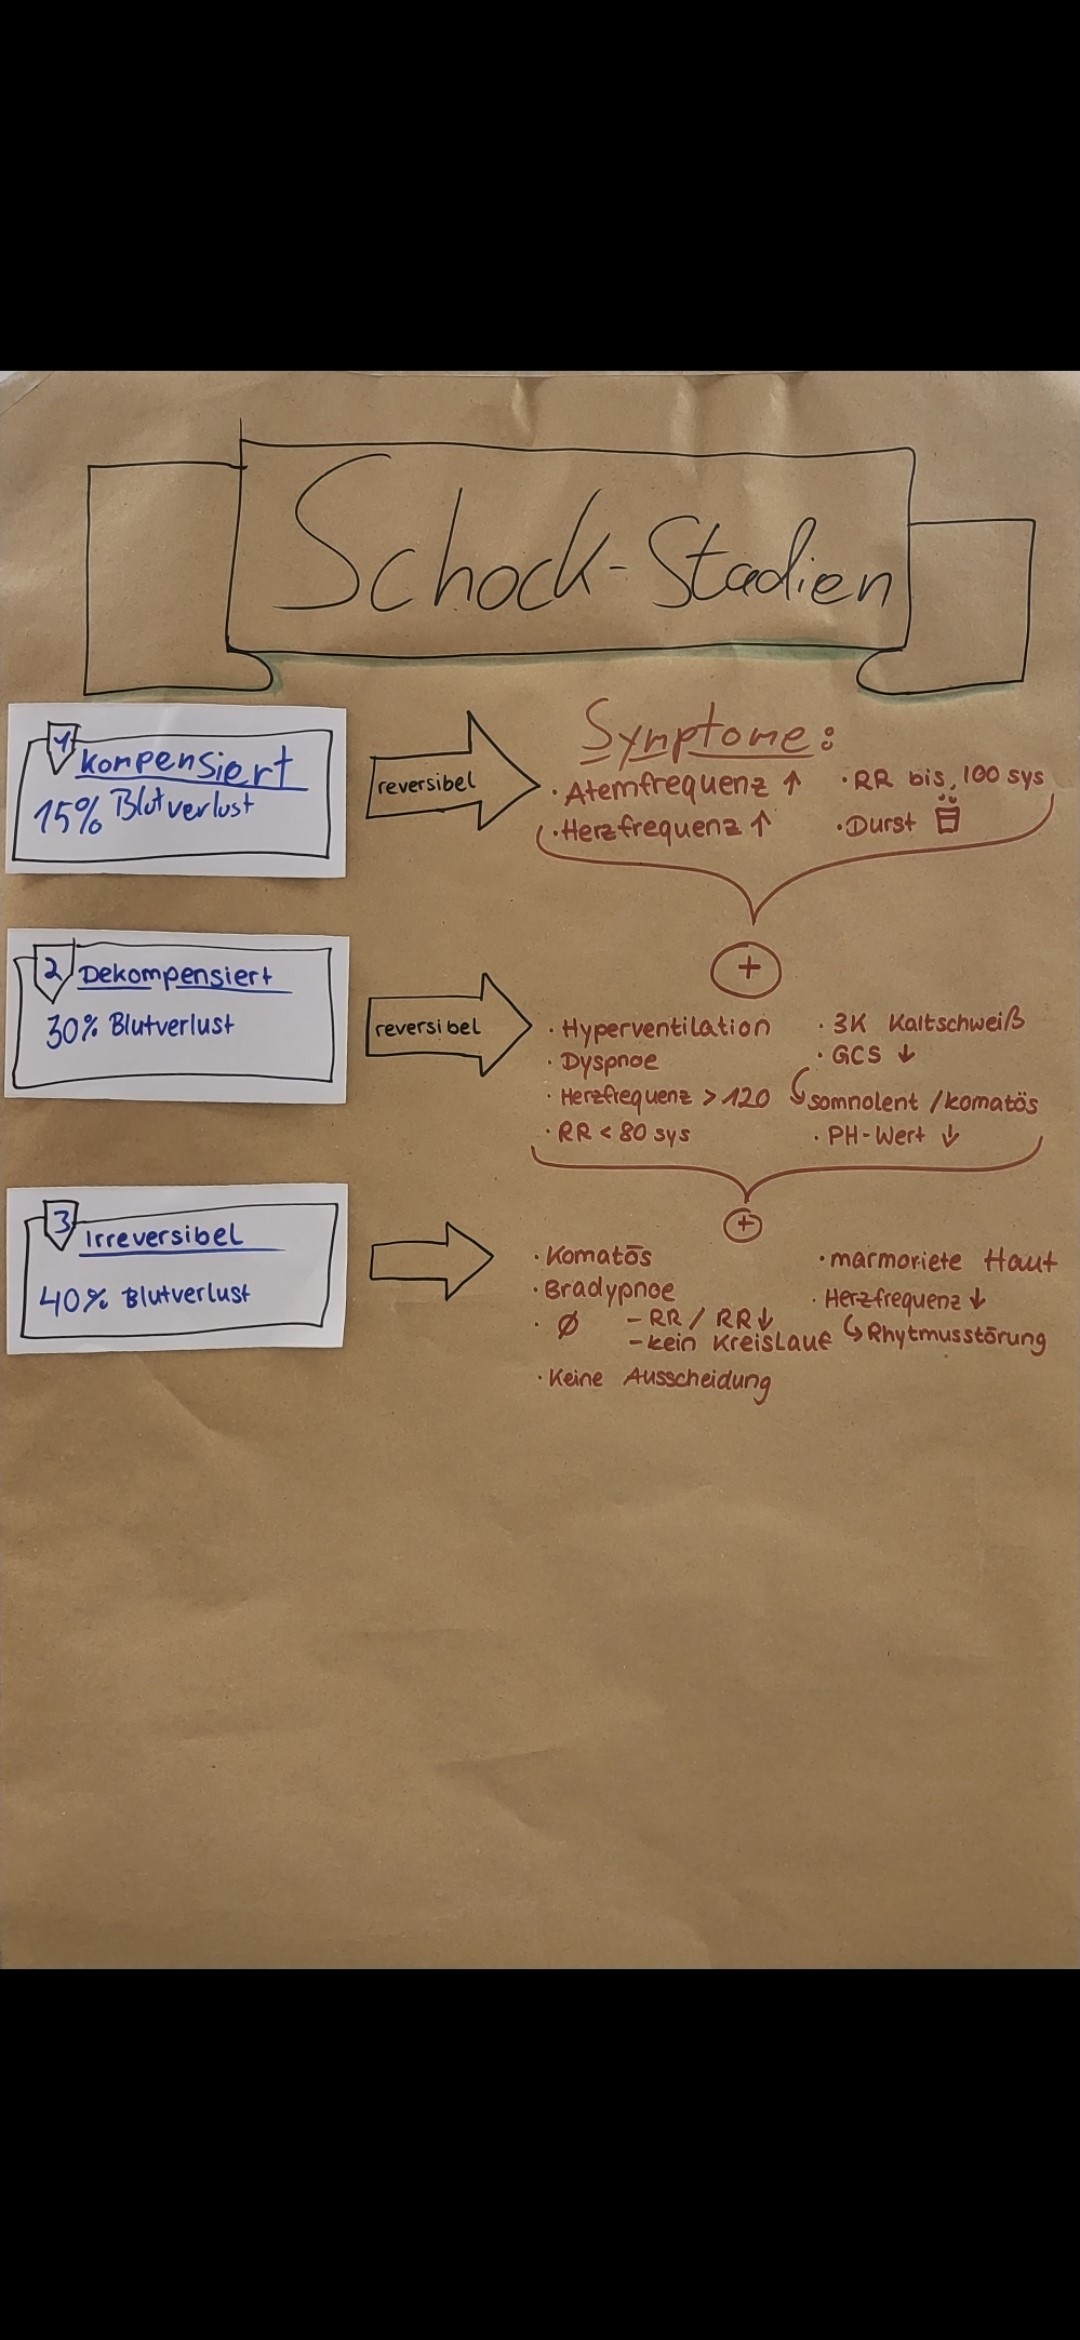 Schock-Stadien
1 Kompensiert
15% Blutverlust
reversibel
Symptome:
· Atemfrequenz ↑
· Herzfrequenz ↑
· RR bis 100 sys
· Durst
+
2 Dekompensiert
30% Blutverlust
reversibel
· Hyperventilation
· Dyspnoe
· Herzfrequenz > 120
· RR < 80 sys
· 3K Kaltschweiß
· GCS ↓
somnolent / komatös
· PH-Wert ↓
+
3 Irreversibel
40% Blutverlust
· Komatös
· Bradypnoe
· Ø – RR / RR↓
– kein Kreislauf
· Keine Ausscheidung
· marmoriete Haut
· Herzfrequenz ↓
Rhytmusstörung